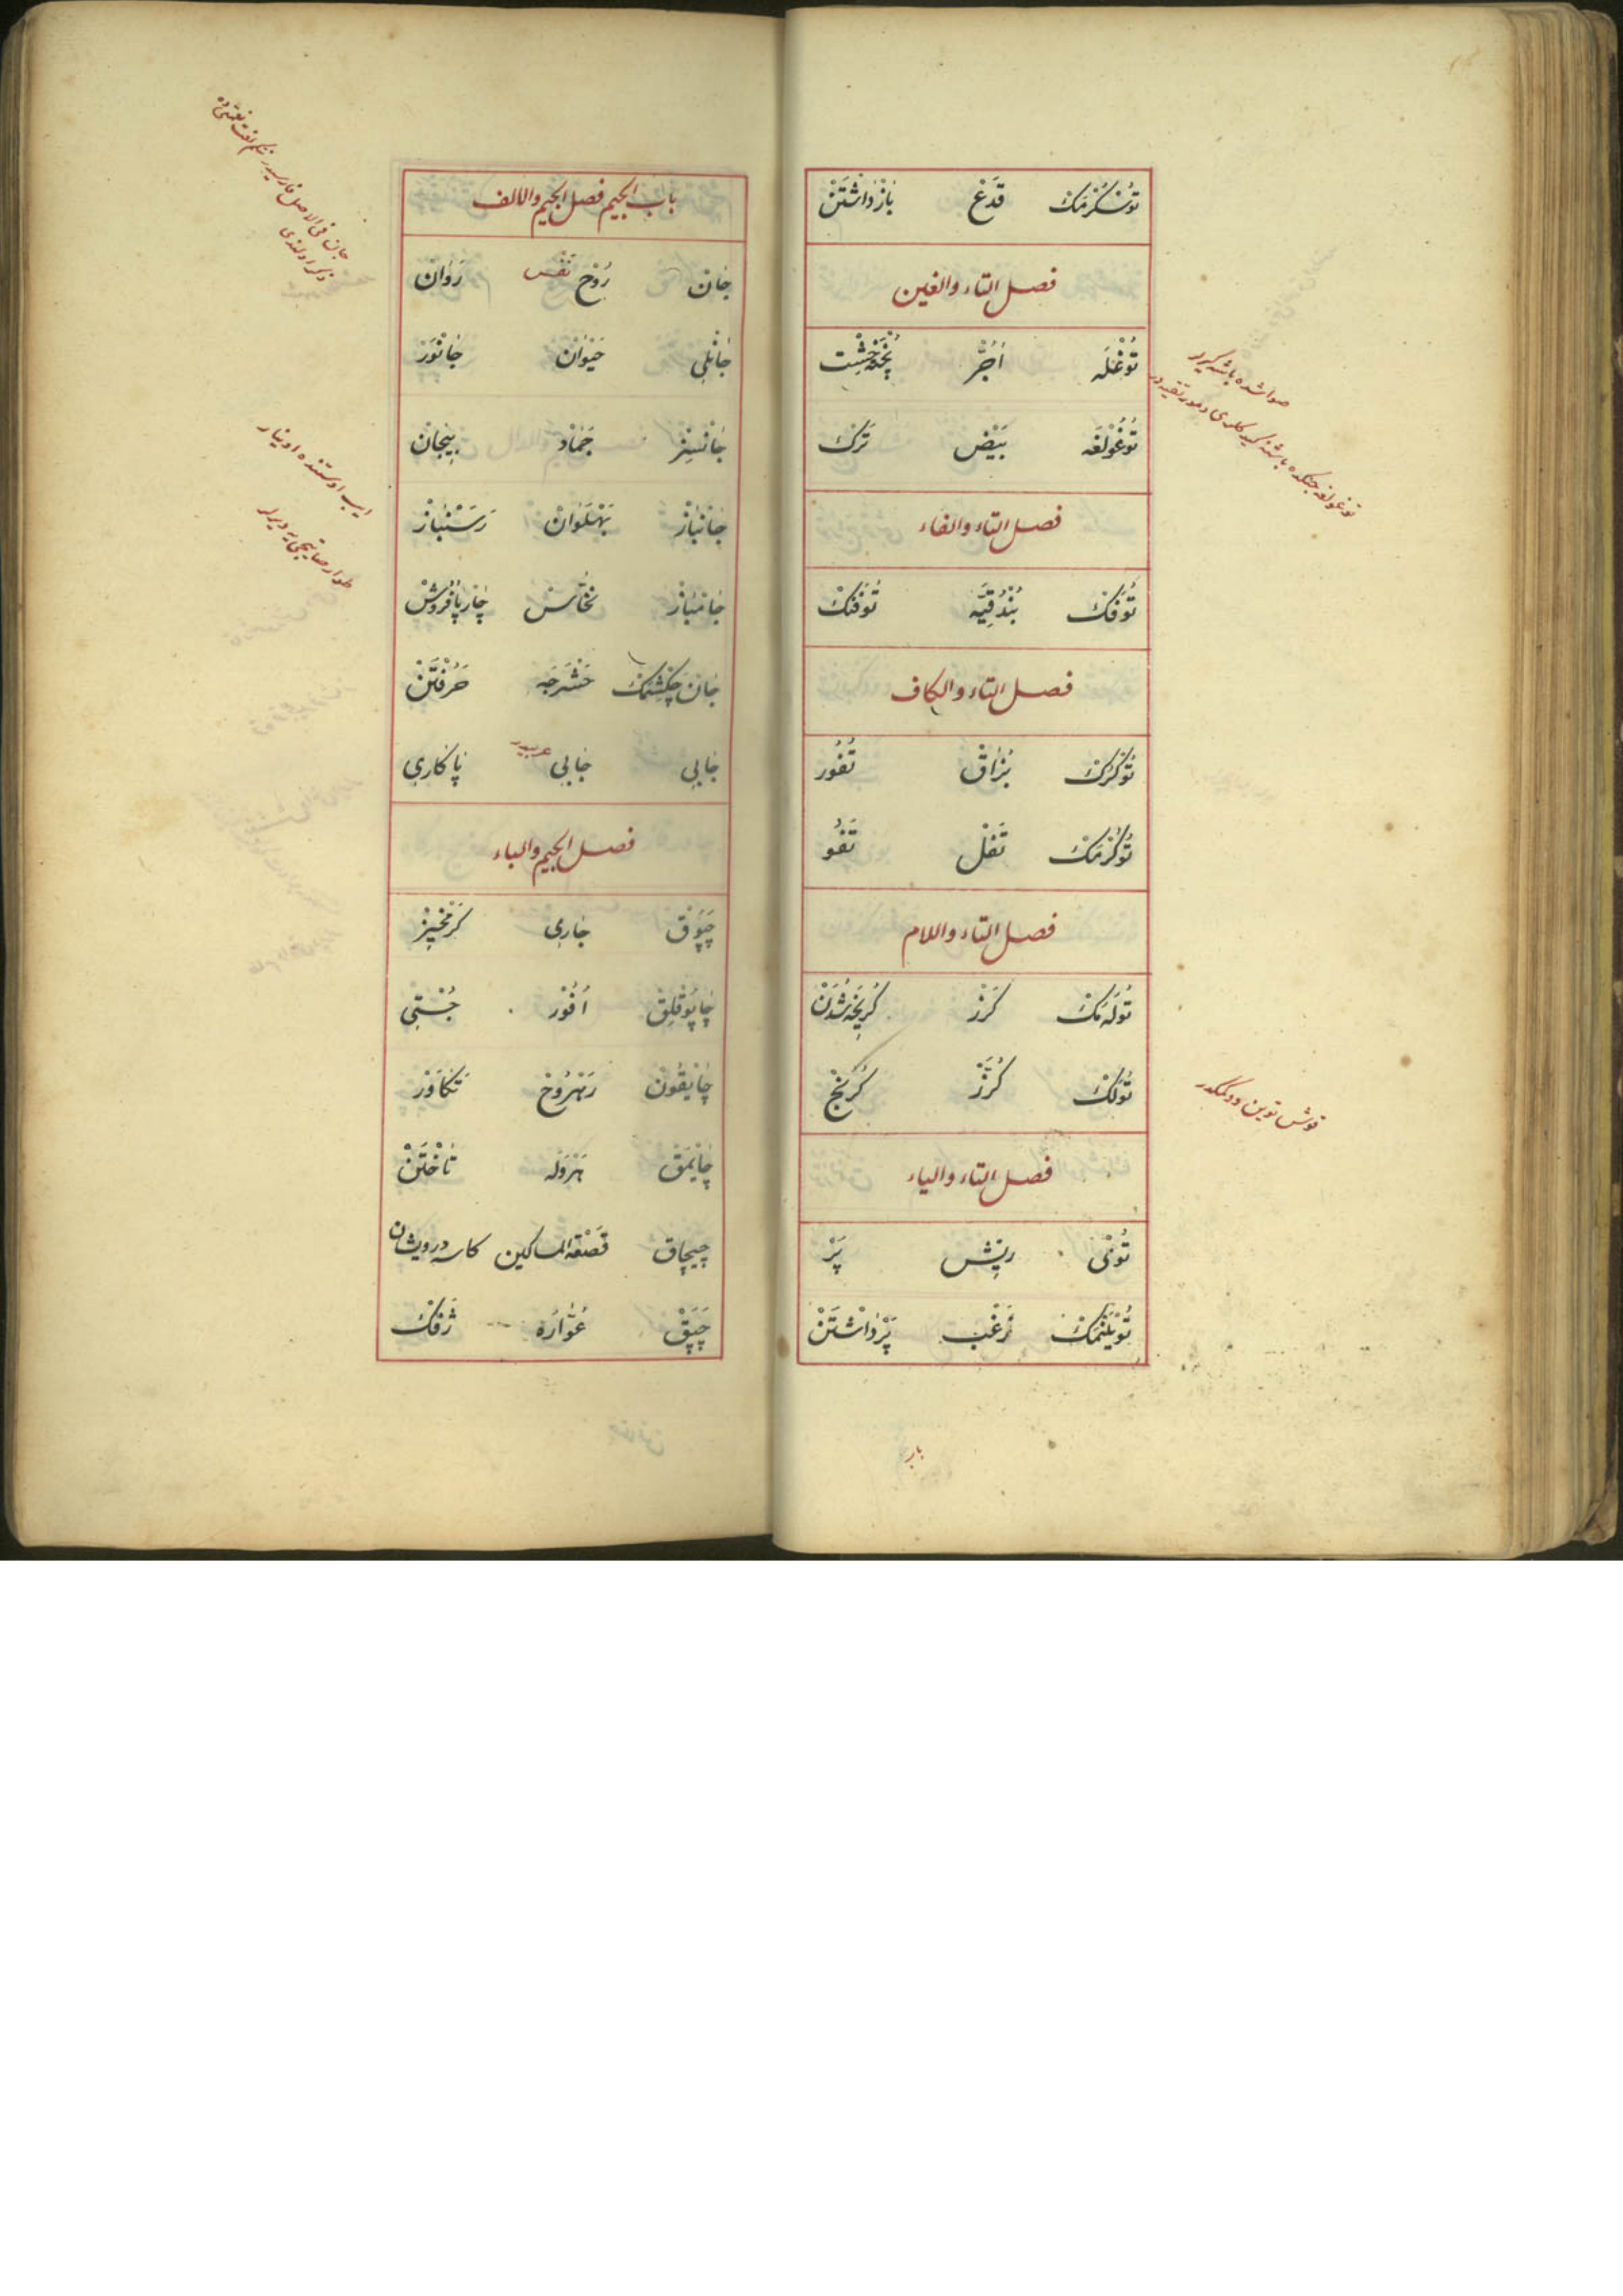 تُوسْكُرْمَكْ قَدَعْ بَازْدَاشْتَنْ
فصل التاء والغين
تُوغْلَه اٰجُرّ پُخْتَه خِشْت
تُوغُولْغَه بَيْضْ تَرَكْ
فصل التاء والفاء
تُوفَكْ بُنْدُقِيَّه تُوفَنْكْ
فصل التاء والكاف
تُوكُرُكْ بُزَاقْ تُفُور
تُوكُرْمَكْ تَفْلْ تَفُو
فصل التاء واللام
تُولَه مَكْ كَرْزْ كُرِيجْه شُدَنْ
تُولَكْ كُرَّزْ كُرَنْجْ
قوش توين دوكمكدر
فصل التاء والياء
تُوىْ رِيشْ پَرْ
تُويْلَنْمَكْ زَغَبْ پَرْدَاشْتَنْ
باب
باب الجيم فصل الجيم والالف
جَانْ رُوحْ نَفْس رَوَانْ
جَانْلِى حَيْوَانْ جَانْوَرْ
جَانْسِزْ جَمَادْ بِيجَانْ
جَانْبَازْ پَهْلَوَانْ رَسَنْبَازْ
ايپ اوستنده اوينار
جَانْبَازْ نَخَّاسْ چَارْپَا فُرُوشْ
طوار صاتيجى يه ديرلر
جَانْ چَكِشْمَكْ حَشْرَجَه خَرْفْتَنْ
جَابِى جَابِى عربيدر پَاكَارِى
فصل الجيم والباء
چَپُوقْ جَارِى كَرْمْخِيزْ
چَاپُوقْلِقْ اُفُورْ جُسْتِى
چَاپْقُونْ رَهْرُوحْ تَكَاوَرْ
چَاپْمَقْ هَرْوَلَه تَاخْتَنْ
چيچاق قَصْعَة المساكين كاسه درويشان
چَپَقْ عُوَّارَه ژَفَكْ